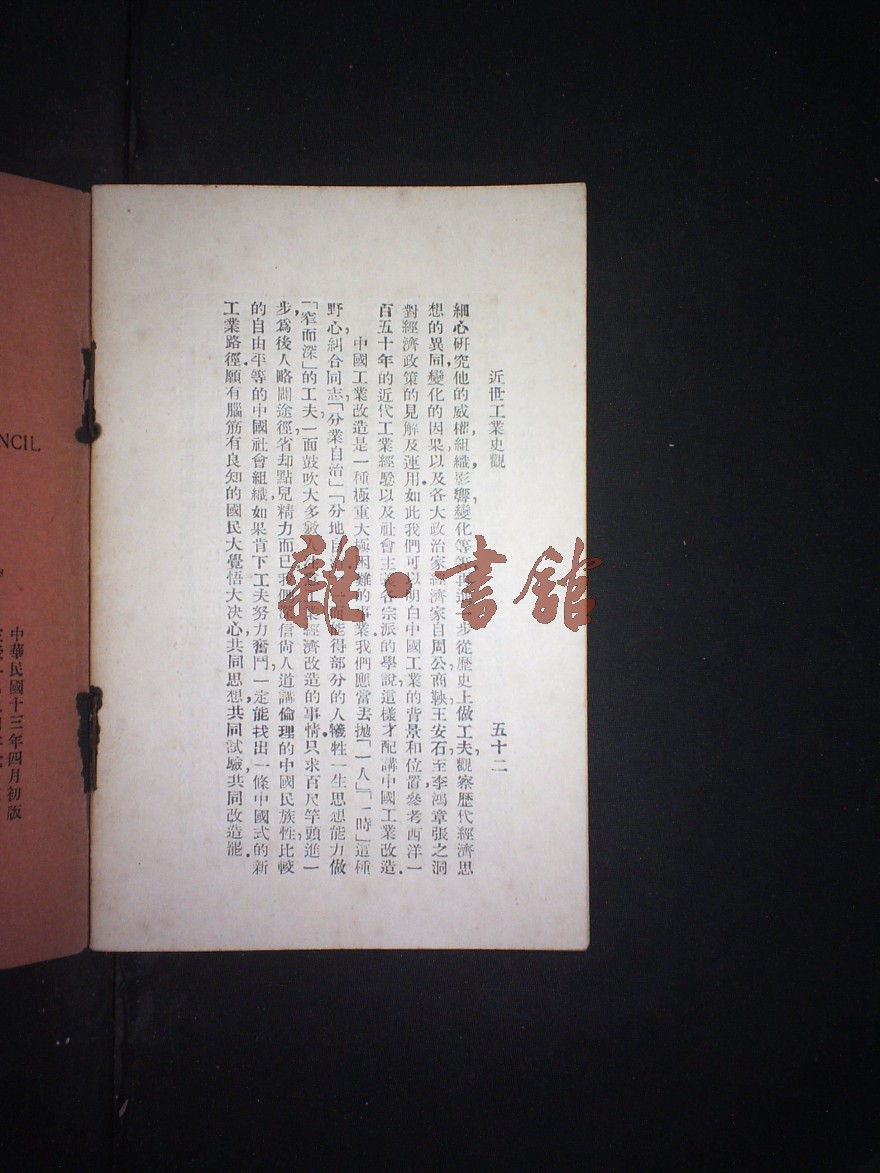 近世工業史觀 五十二
細心研究他的威權,組織,影響,變化等等再進一步從歷史上做工夫,觀察歷代經濟思
想的異同,變化的因果以及各大政治家經濟家自周公,商鞅,王安石,至李鴻章,張之洞
對經濟政策的見解及運用.如此我們可以明白中國工業的背景和位置參考西洋一
百五十年的近代工業經驗以及社會主義各宗派的學說,這樣才配講中國工業改造.
中國工業改造是一種極重大極困難的事業.我們應當丟拋「一人」「一時」這種
野心,糾合同志,「分業自治」「分地自 而能得部分的人犧牲一生思想能力做
「窄而深」的工夫,一面鼓吹大多數人 業經濟改造的事情只求百尺竿頭進一
步,爲後人略闢途徑,省却點兒精力而已我們深信尙人道講倫理的中國民族性,比較
的自由平等的中國社會組織,如果肯下工夫努力奮鬥,一定能找出一條中國式的新
工業路徑.願有腦筋有良知的國民大覺悟大決心,共同思想,共同試驗,共同改造罷.
雜·書館
NCIL
中華民國十三年四月初版